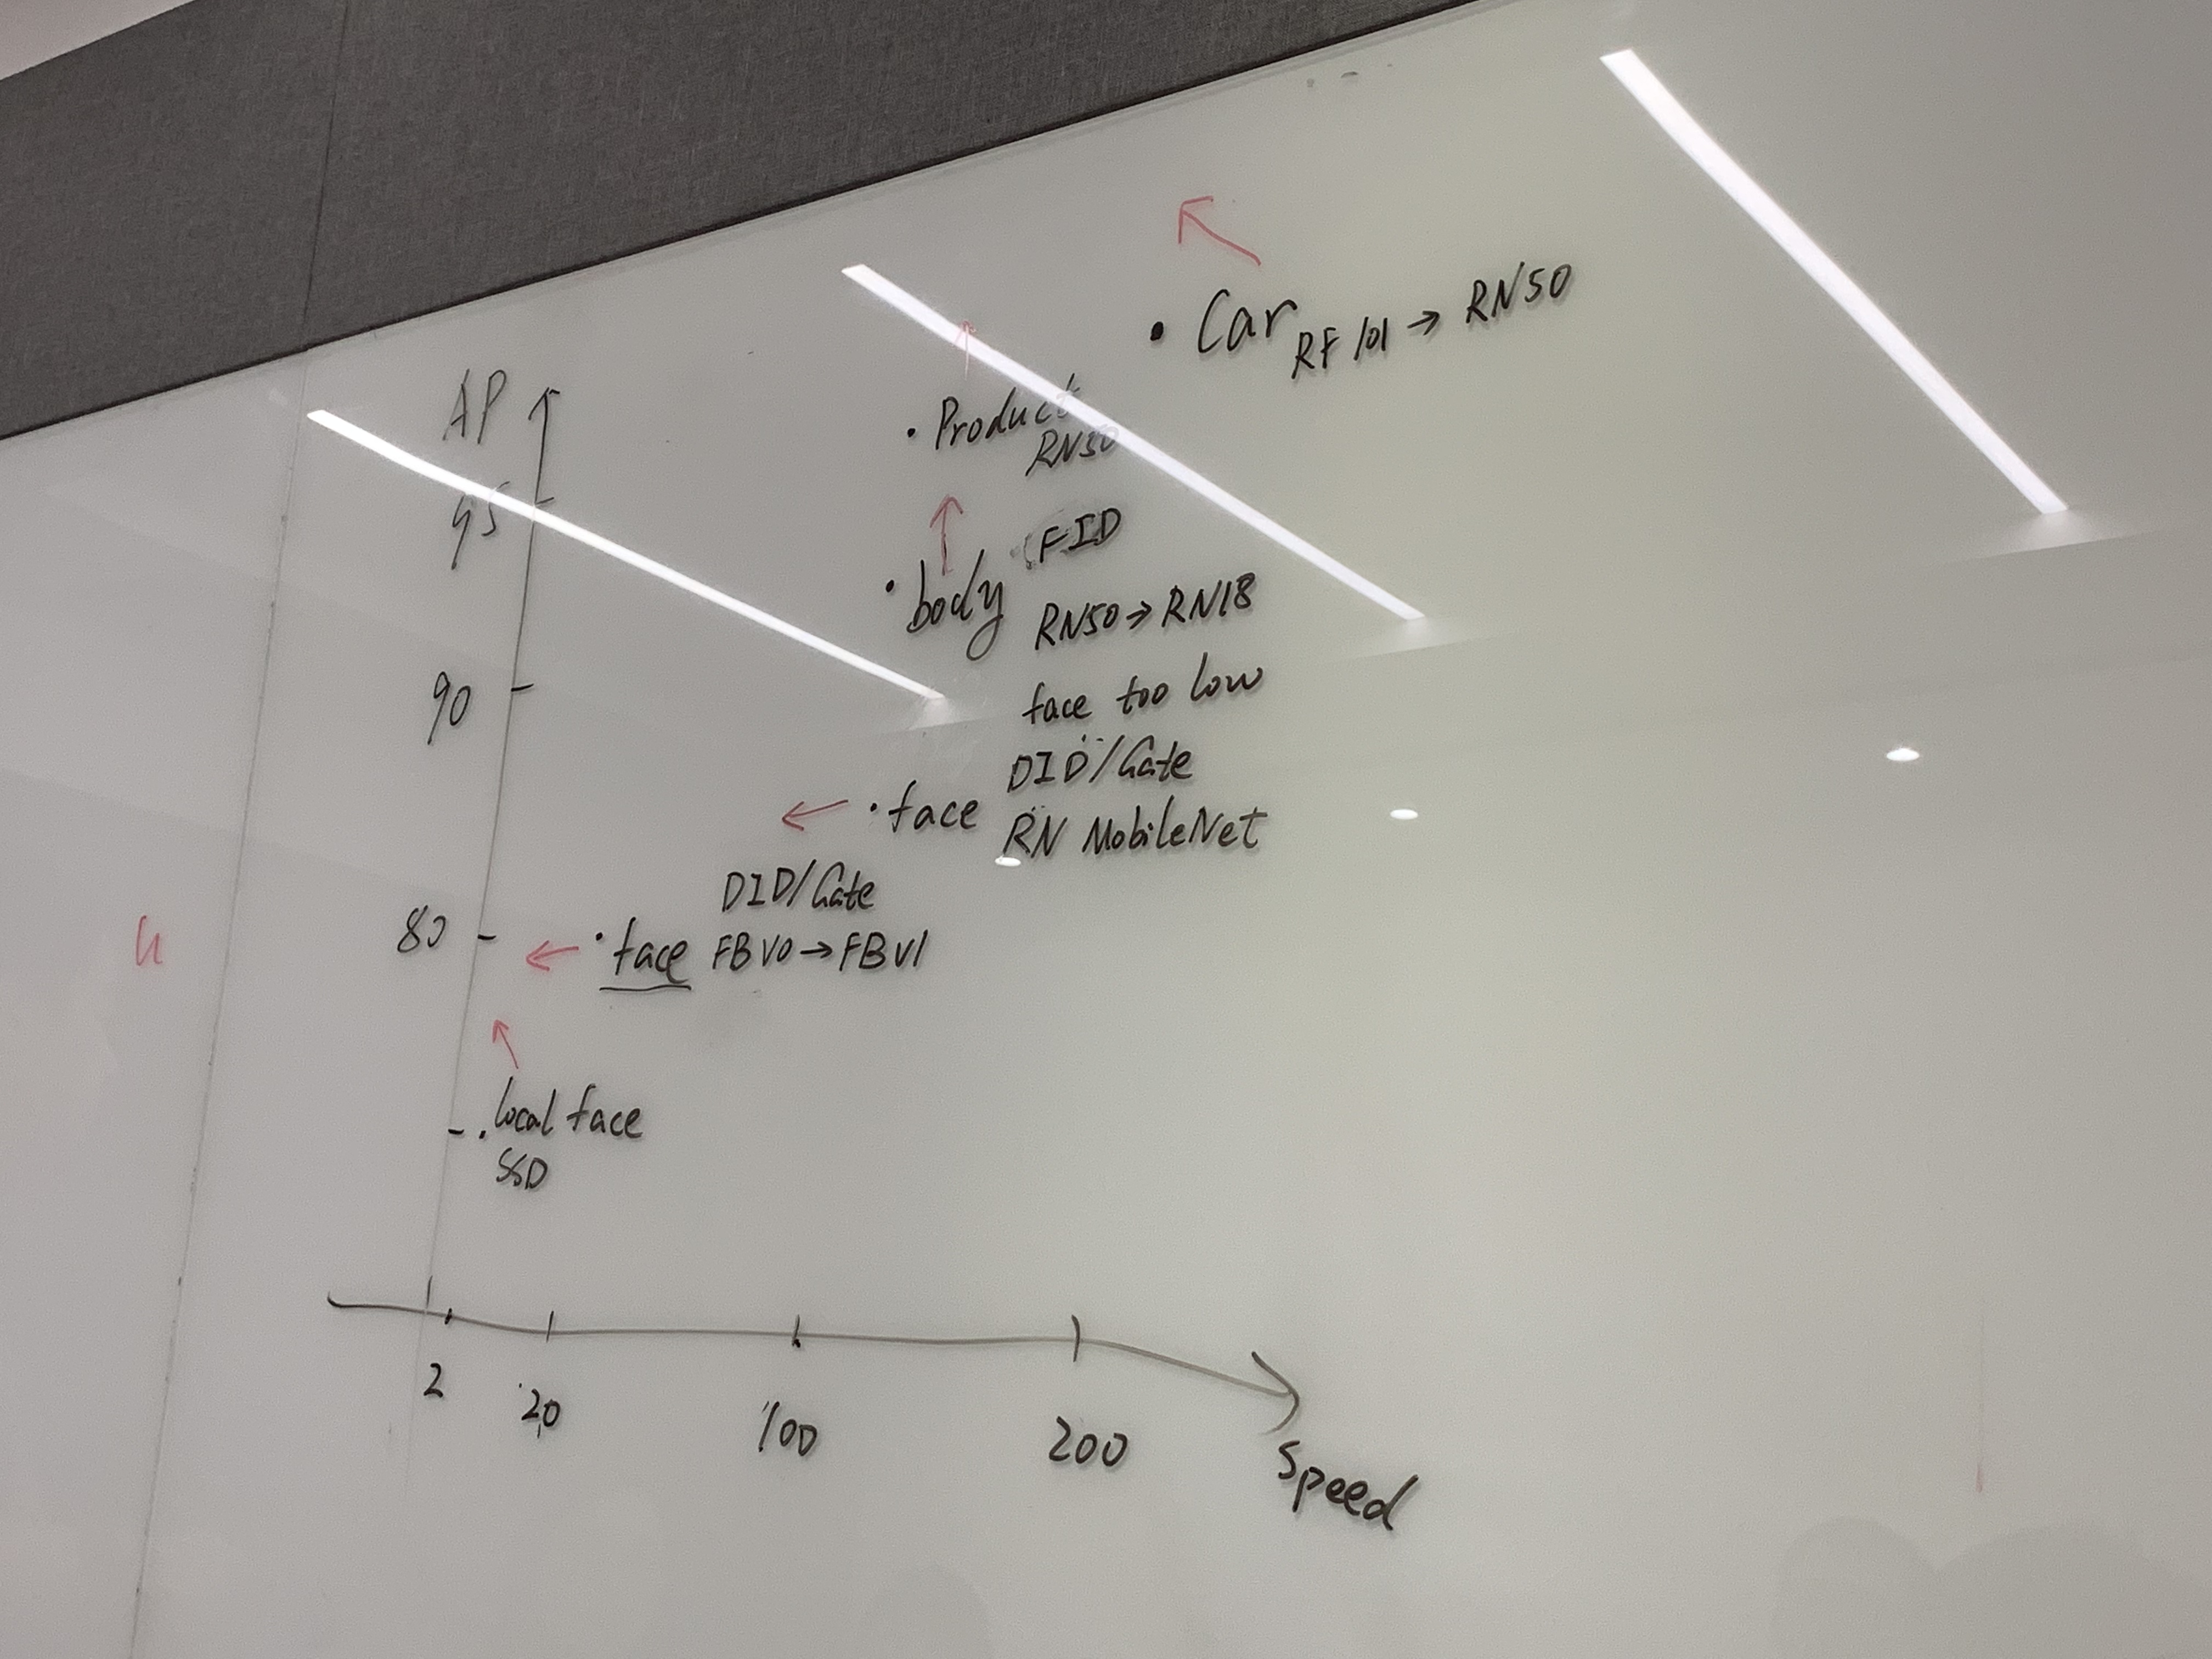 Car RF 101 → RN50
AP
Product
RN50
95
FID
body
RN50 → RN18
90
face too low
DID/Gate
face
RN MobileNet
DID/Gate
80
face FBV0 → FBV1
local face
SSD
2
20
100
200
Speed